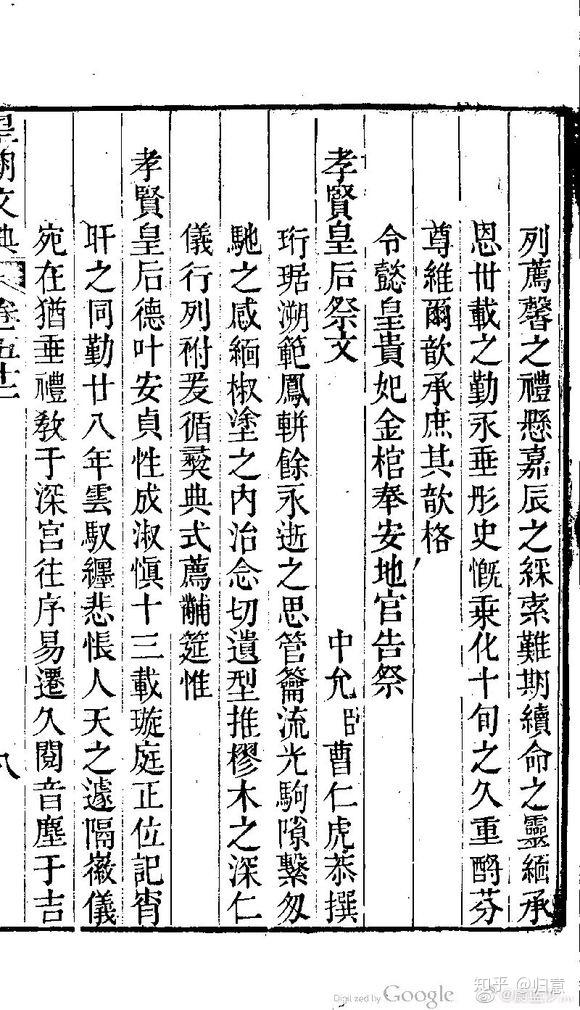 列薦馨之禮懸嘉辰之綵索難期續命之靈緬承
恩丗載之勤永垂彤史慨乗化十旬之久重酹芬
尊維爾歆承庶其歆格
令懿皇貴妃金棺奉安地官告祭
孝賢皇后祭文 中允臣曹仁虎恭撰
珩琚溯範鳳輧餘永逝之思管籥流光駒隙繫匆
馳之感緬椒塗之内治念切遺型推樛木之深仁
儀行列祔爰循彝典式薦黼筵惟
孝賢皇后德叶安貞性成淑慎十三載璇庭正位記宵
旰之同勤廿八年雲馭纒悲悵人天之遽隔徽儀
宛在猶垂禮教于深宫往序易遷久閱音塵于吉
皇朝文典 卷五十二 八
Digitized by Google
知乎 @归意